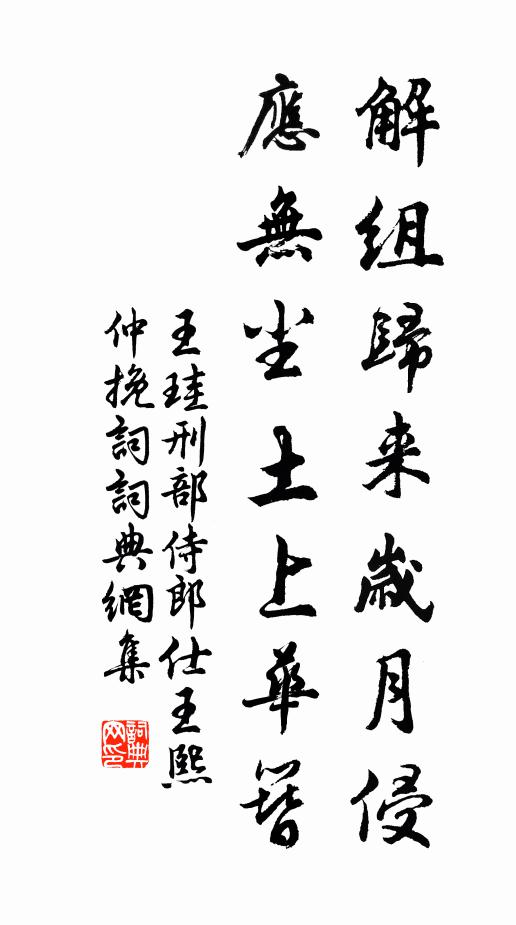 解組歸来歲月侵
應無尘土上華簪
王珪刑部侍郎仕王熙
仲挽詞詞典網集
詞典
网印